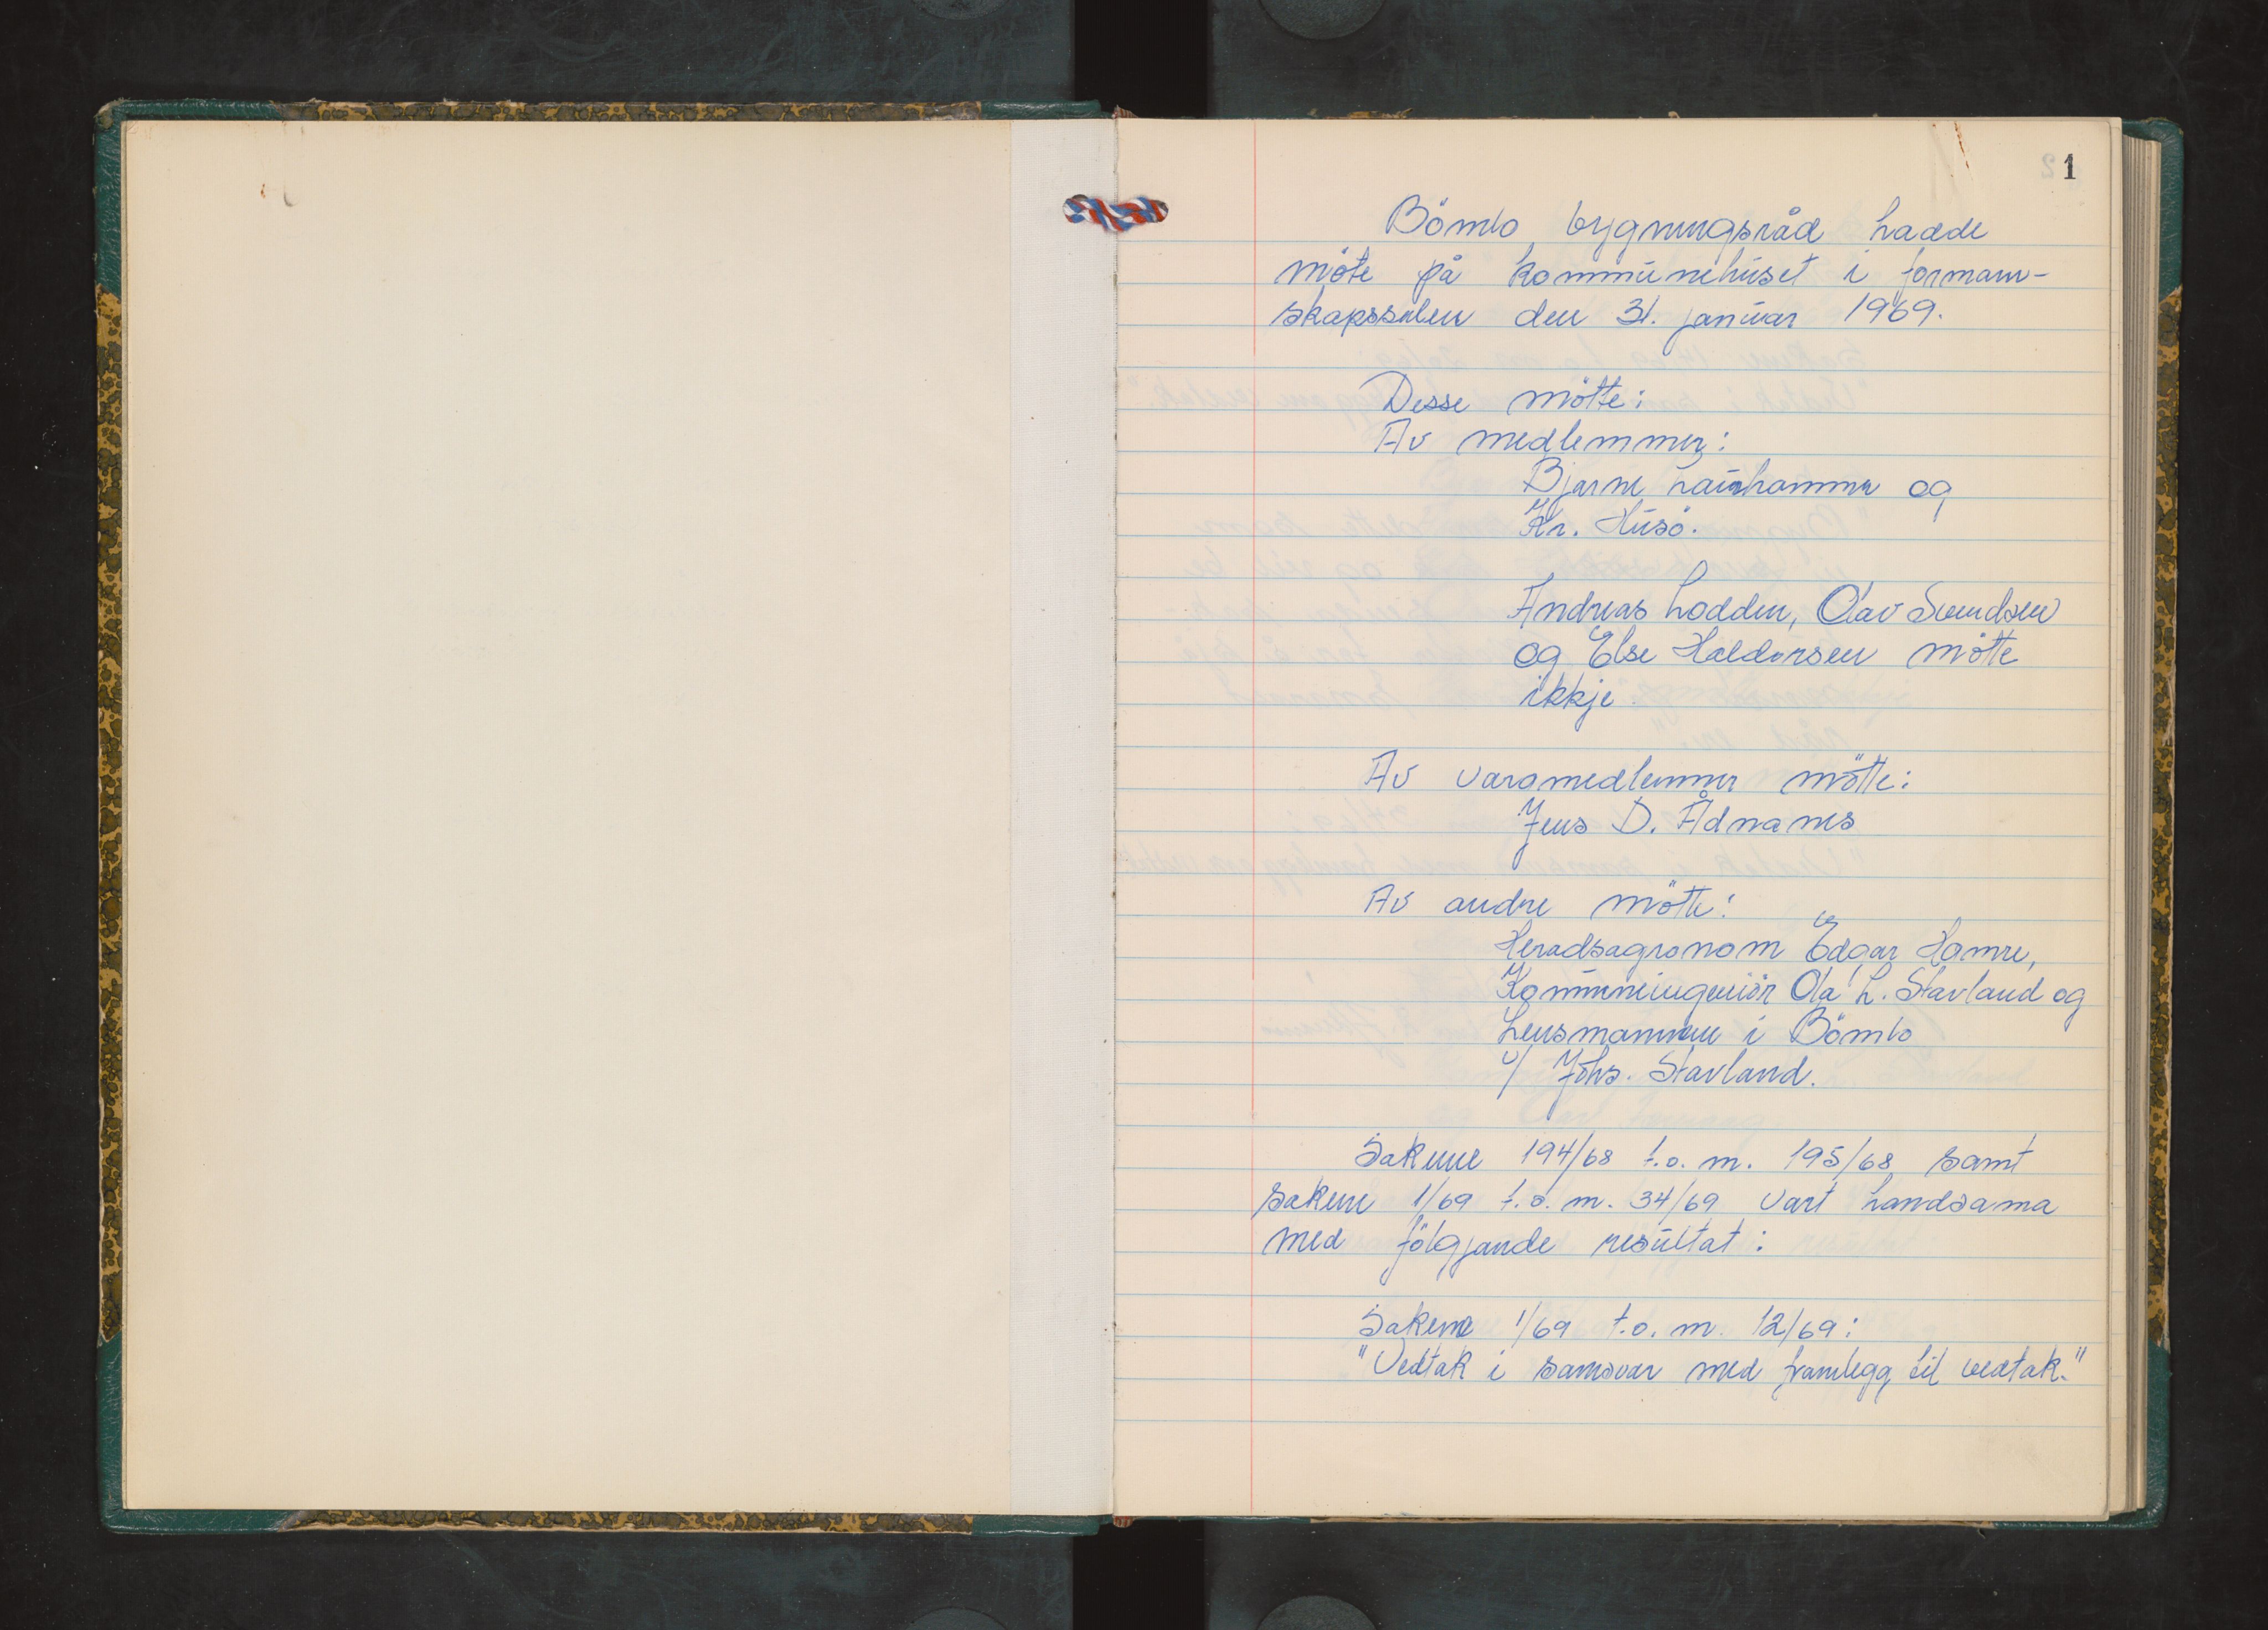 1
Bömlo bygningsråd hadde
möte på kommunehuset i forman-
skapssalen den 31. januar 1969.
Desse mötte:
Av medlemmer:
Bjarne Laurhammer og
Kr. Husö.
Andreas Lodden, Olav Svendsen
og Else Haldorsen mötte
ikkje.
Av varamedlemmer mötte:
Jens D. Ådnanes
Av andre mötte:
Heradsagronom Edgar Hamre,
Kommuneingeniör Ola L. Stavland og
Lensmannen i Bömlo
v/ Johs. Stavland.
Sakene 194/68 t.o.m. 195/68 samt
sakene 1/69 t.o.m. 34/69 vart handsama
med fölgjande resultat:
Sakene 1/69 t.o.m. 12/69:
"Vedtak i samsvar med framlegg til vedtak."